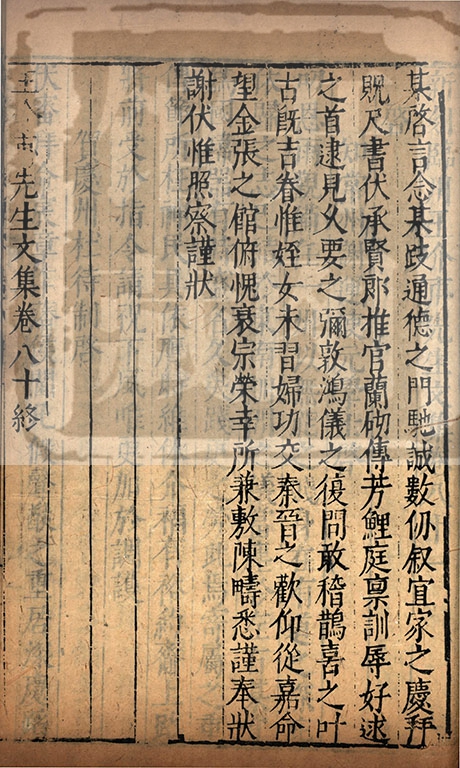 某啓言念某歧通德之門馳誠數仭叙宜家之慶拜
貺尺書伏承賢郎推官蘭砌傳芳鯉庭禀訓辱好逑
之首逮見久要之彌敦鴻儀之復問敢稽鵲喜之叶
古旣吉眷惟姪女未習婦功交秦晉之歡仰從嘉命
望金張之館俯愧衰宗榮幸所兼敷陳疇悉謹奉狀
謝伏惟照察謹狀
先生文集卷八十終